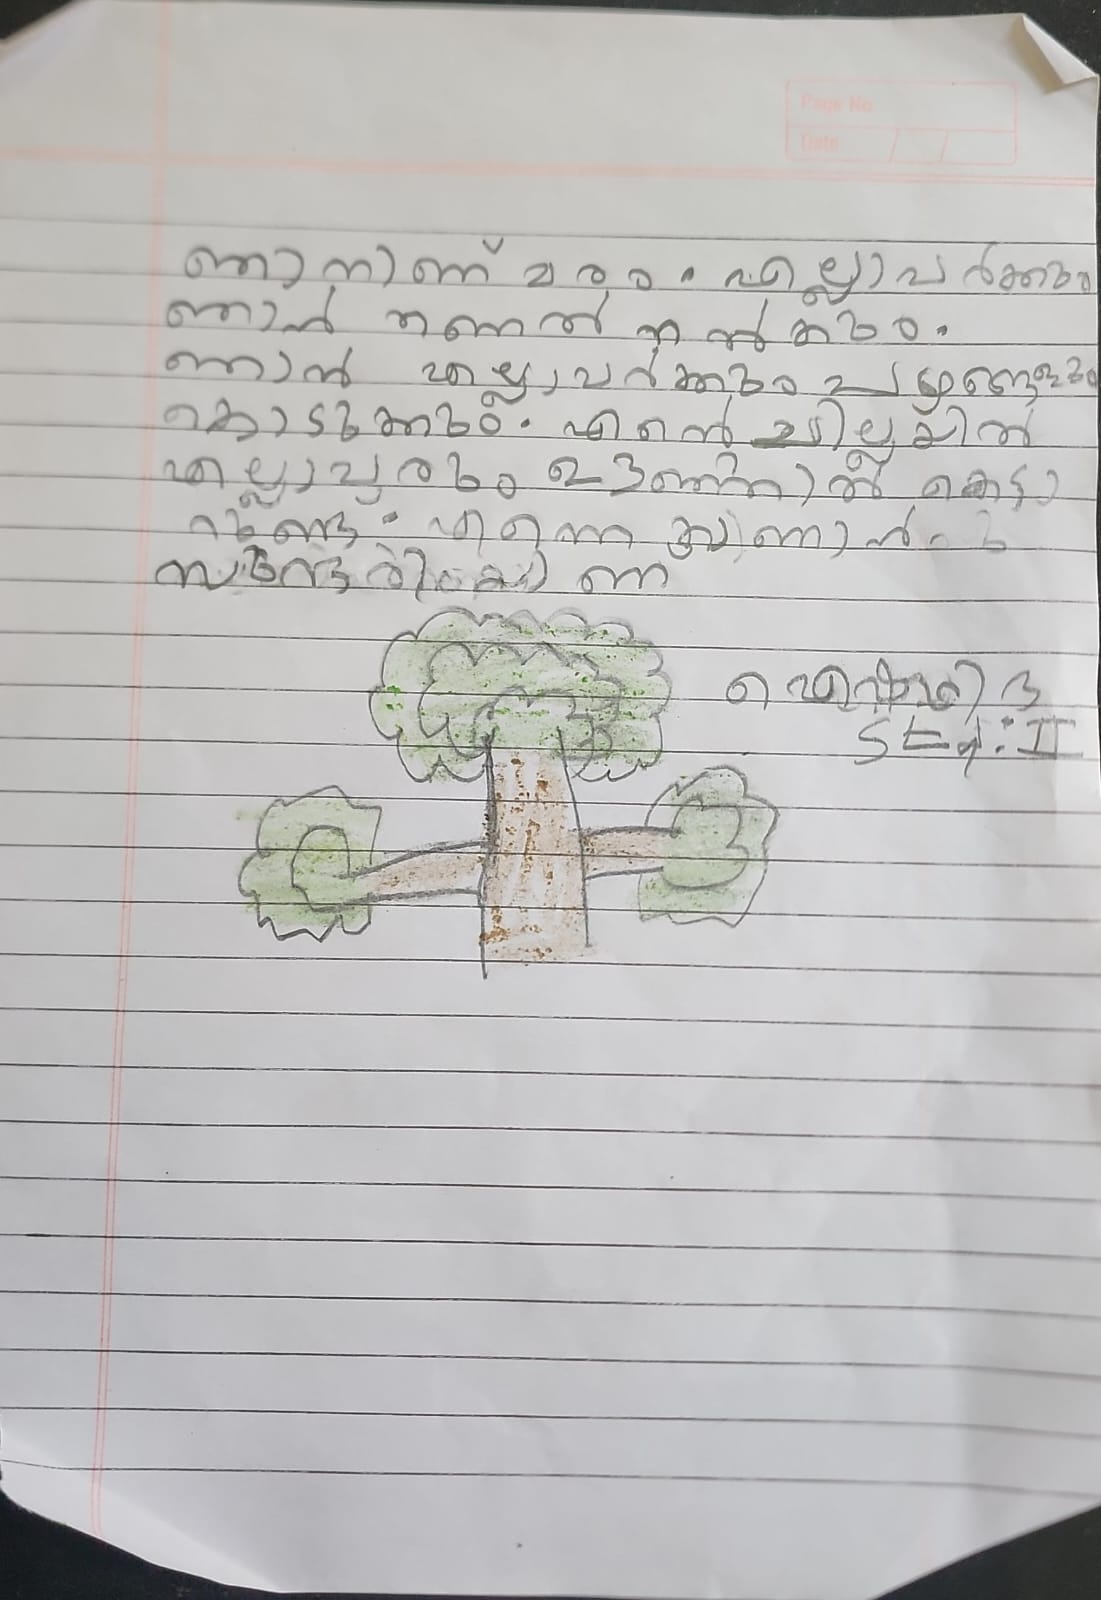 Page No
Date
ഞാനാണ് മരം. എല്ലാവർക്കും
ഞാൻ തണൽ നൽകും.
ഞാൻ എല്ലാവർക്കും പഴങ്ങളും
കൊടുക്കും. എന്റെ ചില്ലയിൽ
എല്ലാവരും ഊഞ്ഞാൽ കെട്ടാ
റുണ്ട്. എന്നെ കാണാൻ
സുന്ദരിയാണ്
Std: II